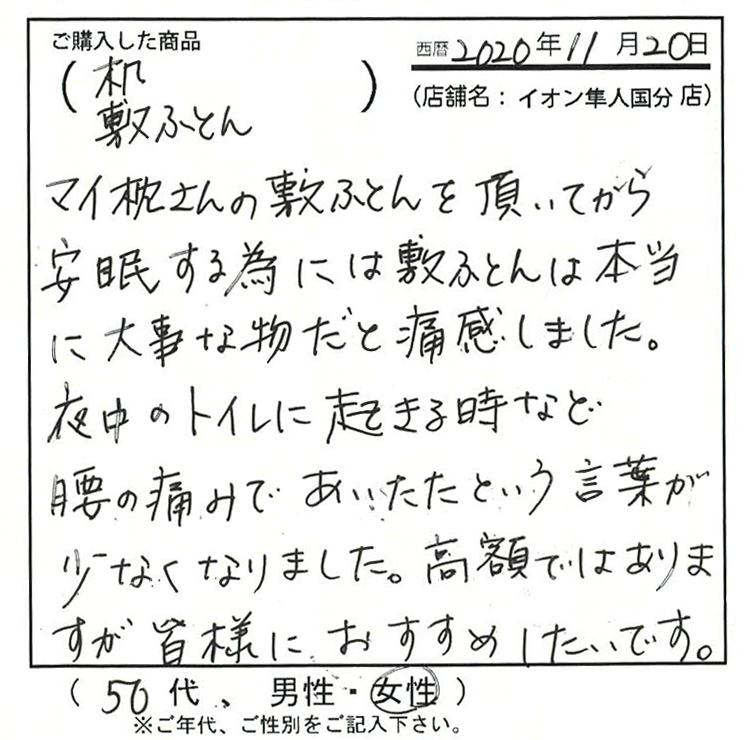 ご購入した商品
西暦2020年11月20日
(店舗名：イオン隼人国分店)
(枕
敷ふとん)
マイ枕さんの敷ふとんを頂いてから
安眠する為には敷ふとんは本当
に大事な物だと痛感しました。
夜中のトイレに起きる時など
腰の痛みで あいたたという言葉が
少なくなりました。高額ではありま
すが皆様に おすすめしたいです。
(50代、男性・女性)
※ご年代、ご性別をご記入下さい。